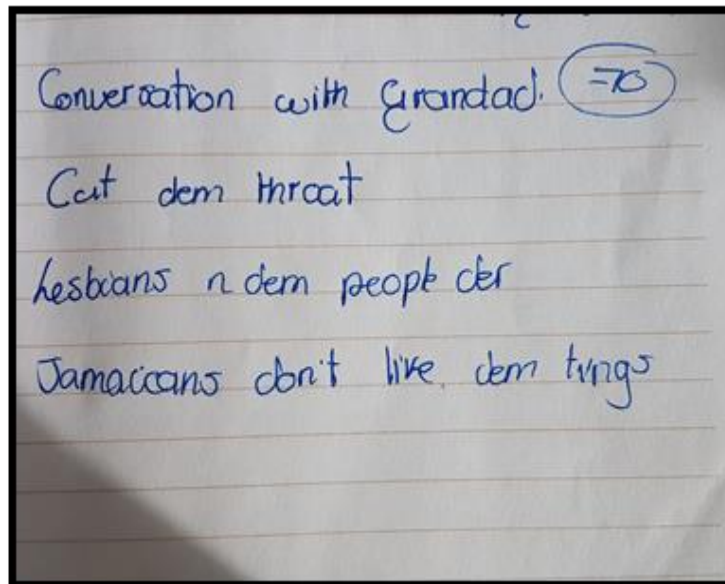 Conversation with Grandad. =70
Cut dem throat
Lesbians n dem people der
Jamaicans don't live dem tings